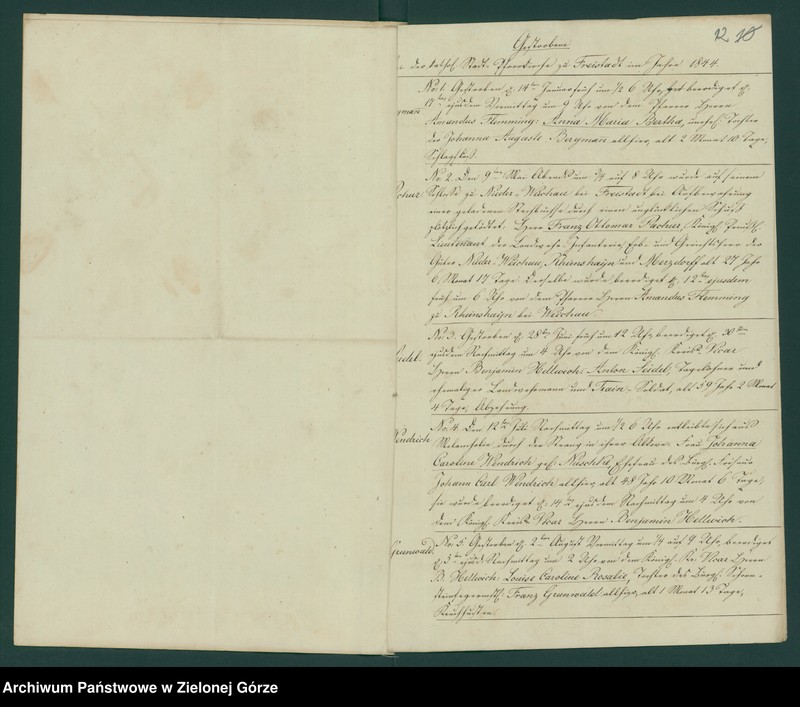 12. 18
Gestorbene
in der kathol. Stadt-Pfarrkirche zu Freistadt im Jahre 1844.
No. 1. Gestorben d. 14ten Januar früh um ½ 6 Uhr, beerdiget d.
17ten ejusdem Vormittag um 9 Uhr von dem Pfarrer Herrn
Bergman Amandus Flemming: Anna Maria Bertha, unehel. Tochter
der Johanna Auguste Bergman allhier, alt 2 Monat 10 Tage,
Schlagfluß.
No. 2. Den 9ten Mai Abends um ¾ auf 8 Uhr wurde auf seinem
Pachur Schlosse zu Nieder-Wüchau bei Freistadt bei Aufbewahrung
einer geladenen Stockbüchse durch einen unglücklichen Schuß
plötzlich getödtet: Herr Franz Ottomar Pachur, Königl. Preuß.
Lieutenant der Landwehr-Infanterie, Erb- und Gerichtsherr der
Güter Nieder-Wüchau, Rheinshayn und Merzdorff alt 27 Jahr
6 Monat 17 Tage. Derselbe wurde beerdiget d. 12ten ejusdem
früh um 6 Uhr von dem Pfarrer Herrn Amandus Flemming
zu Rheinshayn bei Wüchau.
No. 3. Gestorben d. 28ten Juni früh um 12 Uhr, beerdiget d. 30ten
Seidel. ejusdem Nachmittag um 4 Uhr von dem Königl. Kreis-Vicar
Herrn Benjamin Hellwich: Anton Seidel, Tagelöhner und
ehemaliger Landwehrmann und Train-Soldat, alt 39 Jahr 2 Monat
4 Tage, Abzehrung.
No. 4. Den 12ten Juli Nachmittag um ½ 6 Uhr entleibte sich aus
Wendrich Melancholie durch den Strang in ihrer Frau Johanna
Caroline Wendrich geb. Nuschke, Ehefrau des Bürgl.
Johann Carl Wendrich allhier, alt 48 Jahr 10 Monat 6 Tage;
sie wurde beerdiget d. 14ten ejusdem Nachmittag um 4 Uhr von
dem Königl. Kreis-Vicar Herrn Benjamin Hellwich.
Grunwald. No. 5. Gestorben d. 2ten August Vormittag um ¼ auf 9 Uhr, beerdiget
d. 3ten ejusd. Nachmittag um 2 Uhr von dem Königl. Kr. Vicar Herrn
B. Hellwich: Louise Caroline Rosalie, Tochter des Bürgl. Schorn-
steinfegermstr. Franz Grunwald allhier, alt 1 Monat 13 Tage,
Keuchhusten.
Archiwum Państwowe w Zielonej Górze